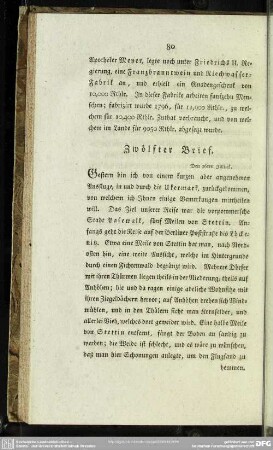 80
Apotheker Meyer, legte noch unter Friedrichs II. Re-
gierung, eine Franzbranntwein und Riechwasser-
Fabrik an, und erhielt ein Gnadengeschenk von
10,000 Rthlr. In dieser Fabrike arbeiten funfzehn Men-
schen; fabrizirt wurde 1796, für 12,000 Rthlr., zu wel-
chem für 10,400 Rthlr. Zuthat verbraucht, und von wel-
chem im Lande für 9050 Rthlr. abgesezt wurde.
Zwölfter Brief.
Gestern bin ich von einem kurzen aber angenehmen
Ausfluge, in und durch die Ukermark, zurückgekommen,
von welchem ich Ihnen einige Bemerkungen mittheilen
will. Das Ziel unserer Reise war die vorpommersche
Stadt Pasewalk, fünf Meilen von Stettin. An-
fangs geht die Reise auf der Berliner Poststraße bis Löcke-
nitz. Etwa eine Meile von Stettin hat man, nach Nord-
osten hin, eine weite Aussicht, welche im Hintergrunde
durch einen Fichtenwald begränzt wird. Mehrere Dörfer
mit ihren Thürmen liegen theils in der Niederung, theils auf
Anhöhen; hie und da ragen einige adeliche Wohnsitze mit
ihren Ziegeldächern hervor; auf Anhöhen drehen sich Wind-
mühlen, und in den Thälern sieht man Kornfelder, und
allerlei Vieh, welches dort geweidet wird. Eine halbe Meile
von Stettin entfernt, fängt der Boden an sandig zu
werden; die Weide ist schlecht, und es wäre zu wünschen,
daß man hier Schonungen anlegte, um den Flugsand zu
hemmen.